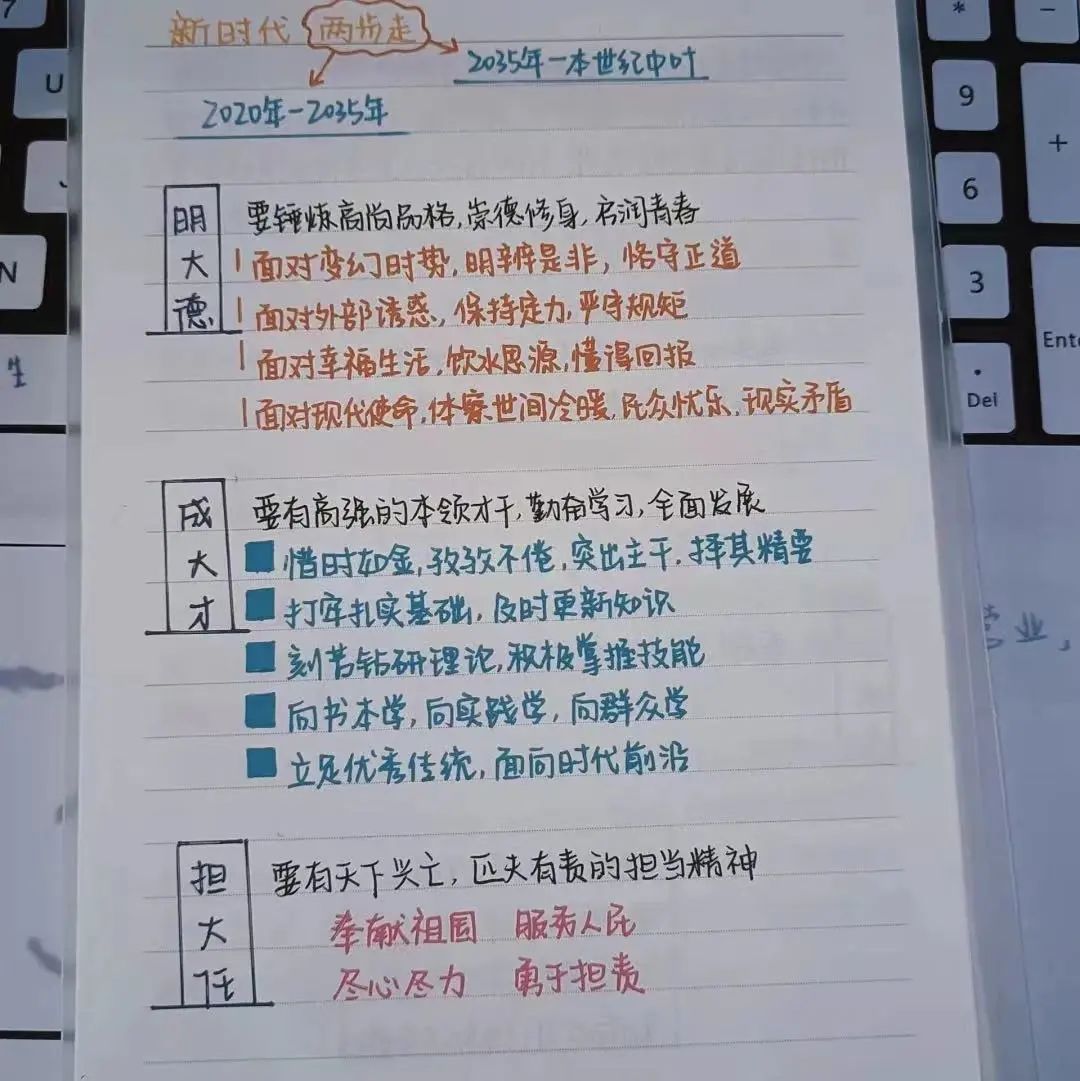 新时代 两步走
2035年-本世纪中叶
2020年-2035年
明大德
要锤炼高尚品格,崇德修身,启润青春
面对变幻时势,明辨是非,恪守正道
面对外部诱惑,保持定力,严守规矩
面对幸福生活,饮水思源,懂得回报
面对现代使命.体察世间冷暖.民众忧乐.现实矛盾
成大才
要有高强的本领才干,勤奋学习,全面发展
惜时如金,孜孜不倦,突出主干.择其精要
打牢扎实基础,及时更新知识
刻苦钻研理论,积极掌握技能
向书本学,向实践学,向群众学
立足优秀传统,面向时代前沿
担大任
要有天下兴亡,匹夫有责的担当精神
奉献祖国 服务人民
尽心尽力 勇于担责
U
N
*
-
9
+
6
3
Ente
.
Del
生
业,